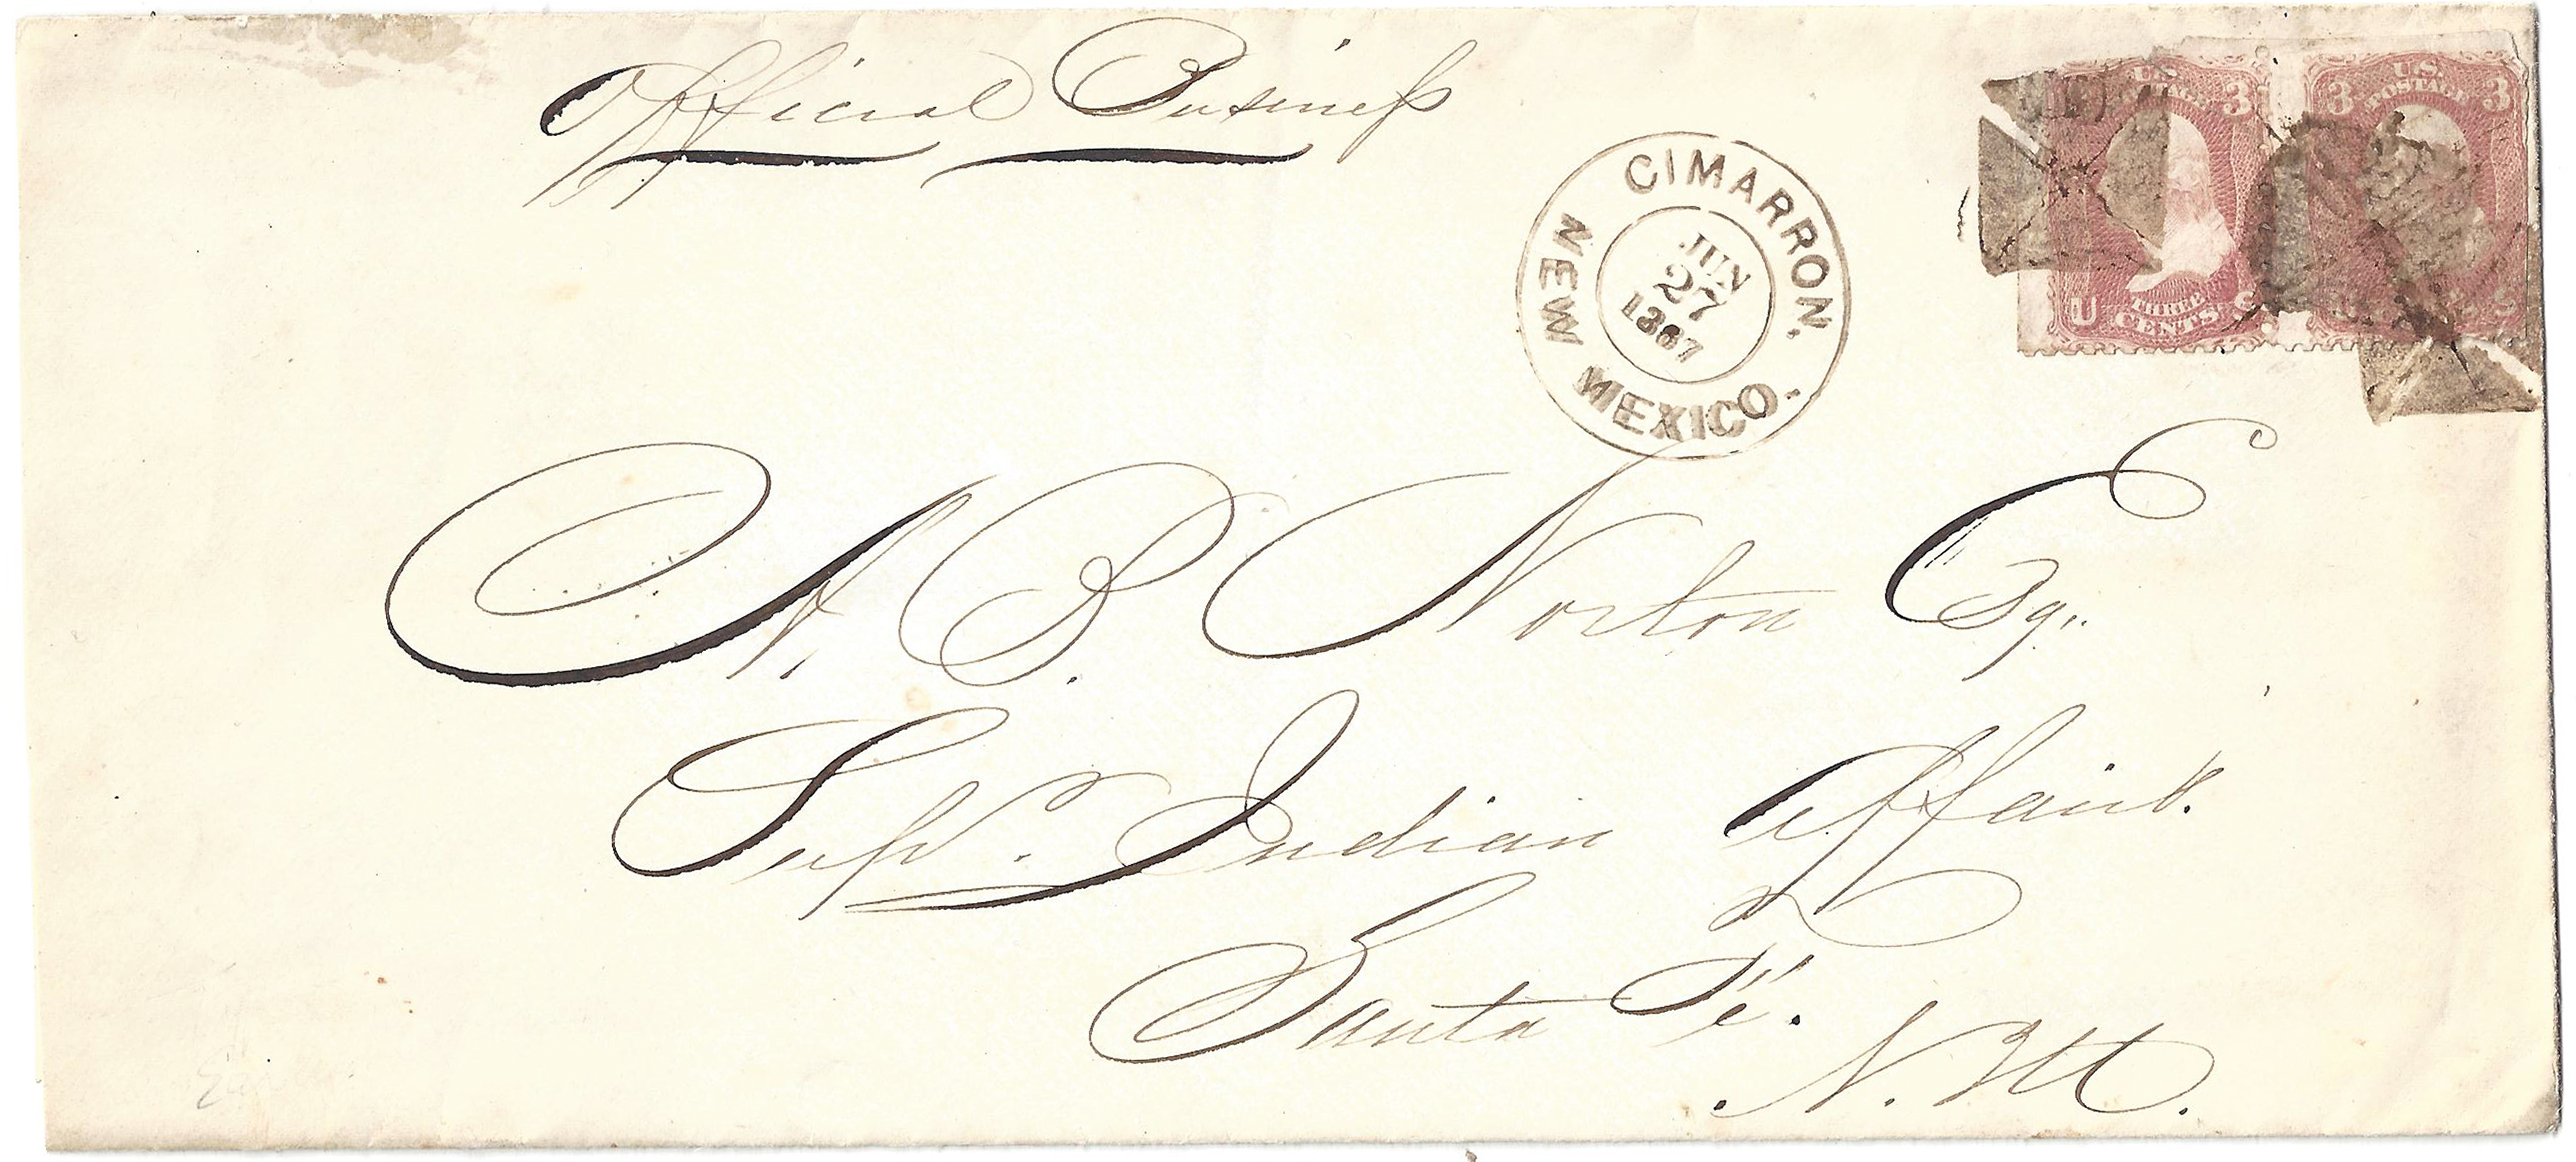 Official Business
CIMARRON.
NEW MEXICO.
JUN
27
1867
U.S. POSTAGE
3
U S
THREE
CENTS
U.S. POSTAGE
3 3
S
A. B. Norton Esq.
Supt. Indian Affairs.
Santa Fé.
N. M.